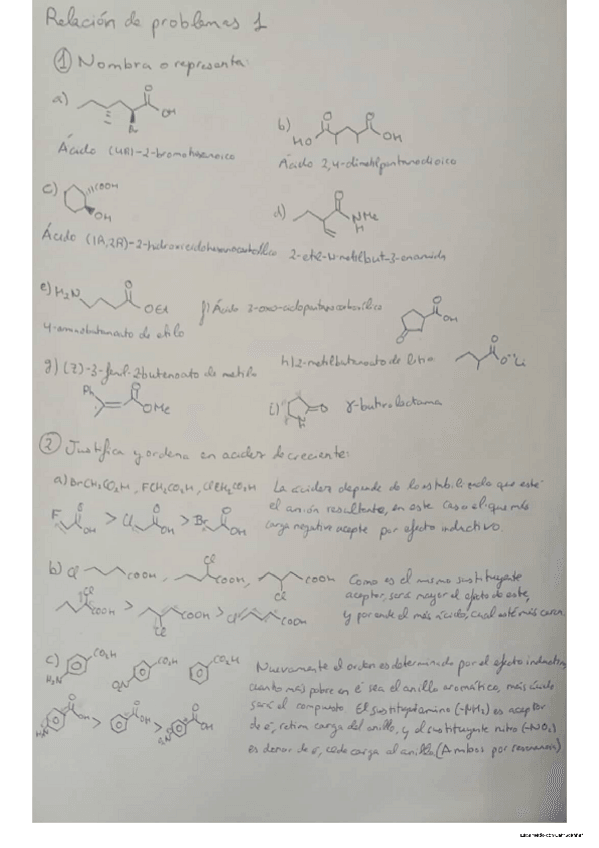 Relación de problemas 1
① Nombra o representa:
a) OH
O
Br
Ácido
b) HO O O OH
Ácido 2,4-dimetilpentanodioico
c) COOH
OH
Ácido (1R,2R)-2-hidroxiciclohexanocarboxílico
d) O
NMe
H
2-etil-N-metilbut-3-enamida
e) H₂N O OEt
4-aminobutanoato de etilo
f) Ácido 3-oxo-ciclopentanocarboxílico
O OH
O
g) (Z)-3-fenil-2butenoato de metilo
Ph O OMe
h) 2-metilbutanoato de litio
O O Li
i) γ-butirolactama
② Justifica y ordena en acidez decreciente:
a) BrCH₂CO₂H, FCH₂CO₂H, ClCH₂CO₂H
F O OH > Cl O OH > Br O OH
La acidez depende de lo estabilizado que esté
el anión resultante, en este caso el que más
carga negativa acepte por efecto inductivo.
b) Cl COOH, Cl COOH, Cl COOH
Cl O OH > Cl COOH > Cl COOH
Como es el mismo sustituyente
aceptor, será mayor el efecto de este,
y por ende el más ácido, cual esté más cerca.
c) H₂N CO₂H O₂N CO₂H CO₂H
H₂N O OH > O OH > O₂N O OH
Nuevamente el orden es determinado por el efecto inductivo,
cuanto más pobre en e⁻ sea el anillo aromático, más ácido
será el compuesto. El sustituyente amino (-NH₂) es aceptor
de e⁻, retira carga del anillo, y el sustituyente nitro (-NO₂)
es donor de e⁻, cede carga al anillo (Ambos por resonancia)